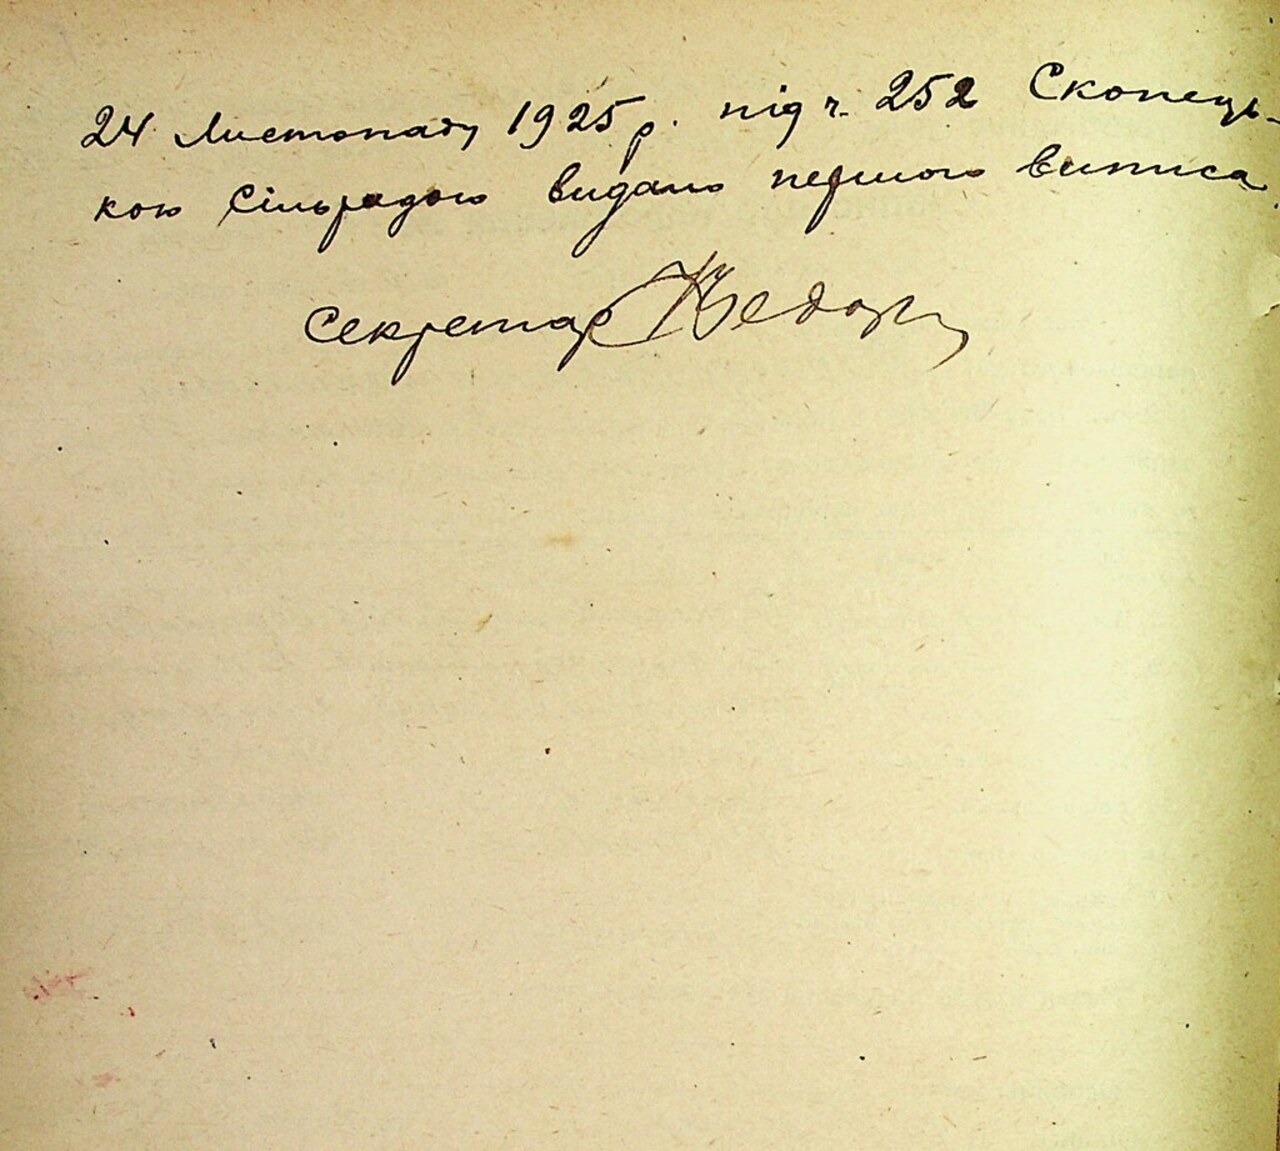 24 Листопаду 1925 р. під ч. 252 Скопець-
кою Сільрадою видано першого виписа.
Секретар